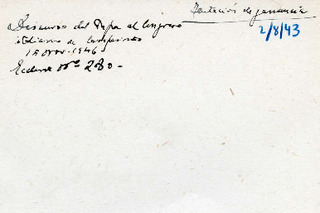 Limitación de ganancia
2/8/43
Discurso del Papa al Congreso
italiano de campesinos
15 Nov. 1946
Ecclesia nº 280.-